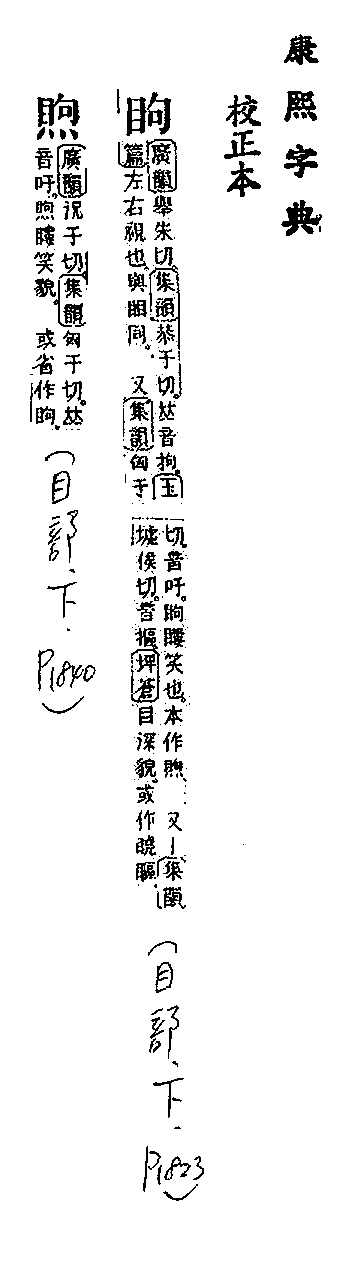 康熙字典
校正本
眗
廣韻舉朱切集韻恭于切𠀤音拘玉
篇左右視也與䀠同 又集韻匈于
切音吁眗瞜笑也本作煦 又集韻
墟侯切音摳埤蒼目深貌或作瞘
(目部.下.
P1823)
煦
廣韻況于切集韻匈于切𠀤
音吁煦瞜笑貌 或省作眗
(目部.下.
P1840)